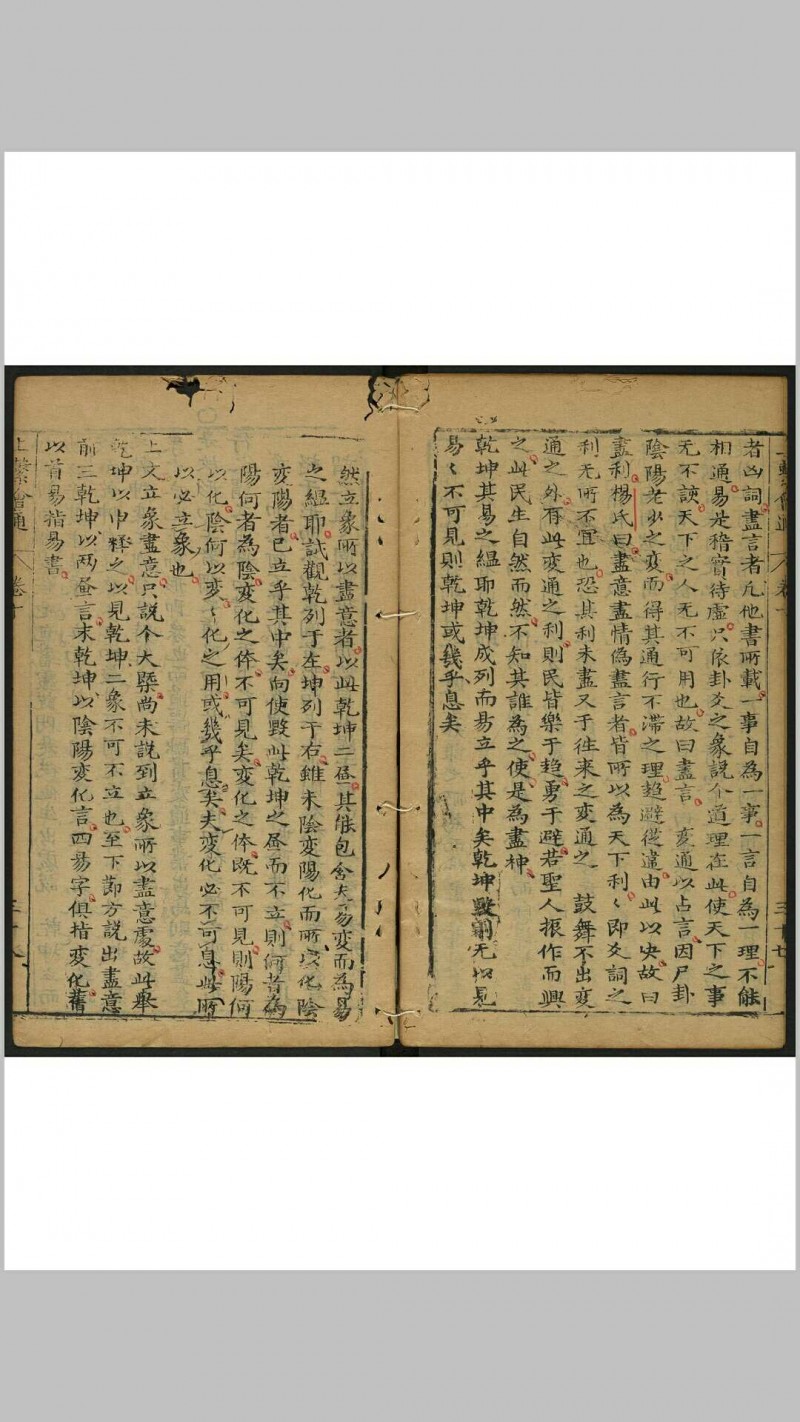 者凶詞盡言者凡他書所載一事自為一事一言自為一理不能
相通易是稽實待虛只依卦爻之象說个道理在此使天下之事
无不該天下之人无不可用也故曰盡言 変通以占言因尸卦
陰陽老少之変而得其通行不滯之理趋避從違由此以决故曰
盡利楊氏曰盡意盡情偽盡言者皆所以為天下利〻即爻詞之
利无所不宜也恐其利未盡又于徃来之変通之 鼓舞不出変
通之外存此変通之利則民皆樂于趋勇于避若聖人振作而興
之此民生自然而然不知其誰為之使是為盡神
乾坤其易之緼耶乾坤成列而易立乎其中矣乾坤毀則无以見
易〻不可見則乾坤或幾乎息矣
然立象所以盡意者以此乾坤二𦘕其能包含夫易変而為易
之緼耶試觀乾列于左坤列于右雖未陰変陽化而所以化陰
変陽者已立乎其中矣向使毀此乾坤之𦘕而不立則何者為
陽何者為陰変化之体不可見矣変化之体既不可見則陽何
以化陰何以変〻化之用或幾乎息矣夫変化必不可息此所
以必立象也
上文立象盡意只說个大槩尚未說到立象所以盡意處故此舉
乾坤以申釋之以見乾坤二象不可不立也至下節方說出盡意
前三乾坤以两𦘕言末乾坤以陰陽変化言四易字俱指変化舊
以首易指易書
上繫會通 卷十